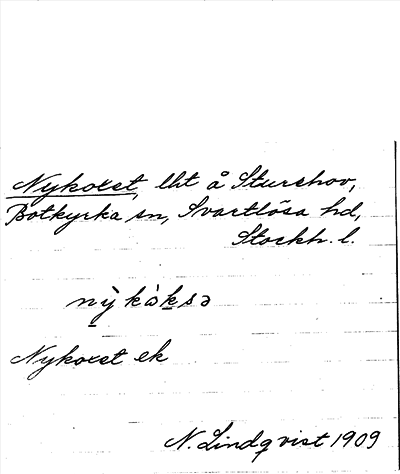 Nykoxet, lht å Sturehov,
Botkyrka sn, Svartlösa hd,
Stockh. l.
nỳkòksə
Nykoxet ek
N. Lindqvist 1909